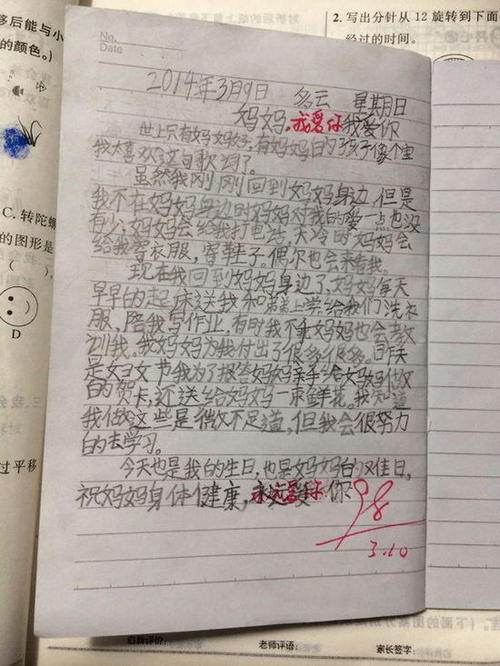 移后能与小
的颜色。)
C. 转陀螺
的图形是
( )。
D
过平移
2. 写出分针从 12 旋转到下面
经过的时间。
No.
Date
2014年3月9日 多云 星期日
妈妈,我爱你
世上只有妈妈好,有妈妈的孩子像个宝
我太喜欢这句歌词了。
虽然我刚刚回到妈妈身边,但是
我不在妈妈身边时妈妈对我的爱一点也没
有少,妈妈会给我打电话,天冷时妈妈会
给我寄衣服,寄鞋子,偶尔也会来看我。
现在我回到妈妈身边了,妈妈每天
早早的起床送我和弟弟上学,给我们洗衣
服,陪我写作业,有时我不乖妈妈也会教
到我。我妈妈为我付出了很多很多。昨天
是妇女节我为了报答妈妈亲手给妈妈做
的贺卡,还送给妈妈一束鲜花。我知道
我做这些是微不足道,但我会很努力
的去学习。
今天也是我的生日,也是妈妈的
祝妈妈身体健康, 你
98
3.10
自我评价:
老师评语:
家长签字: